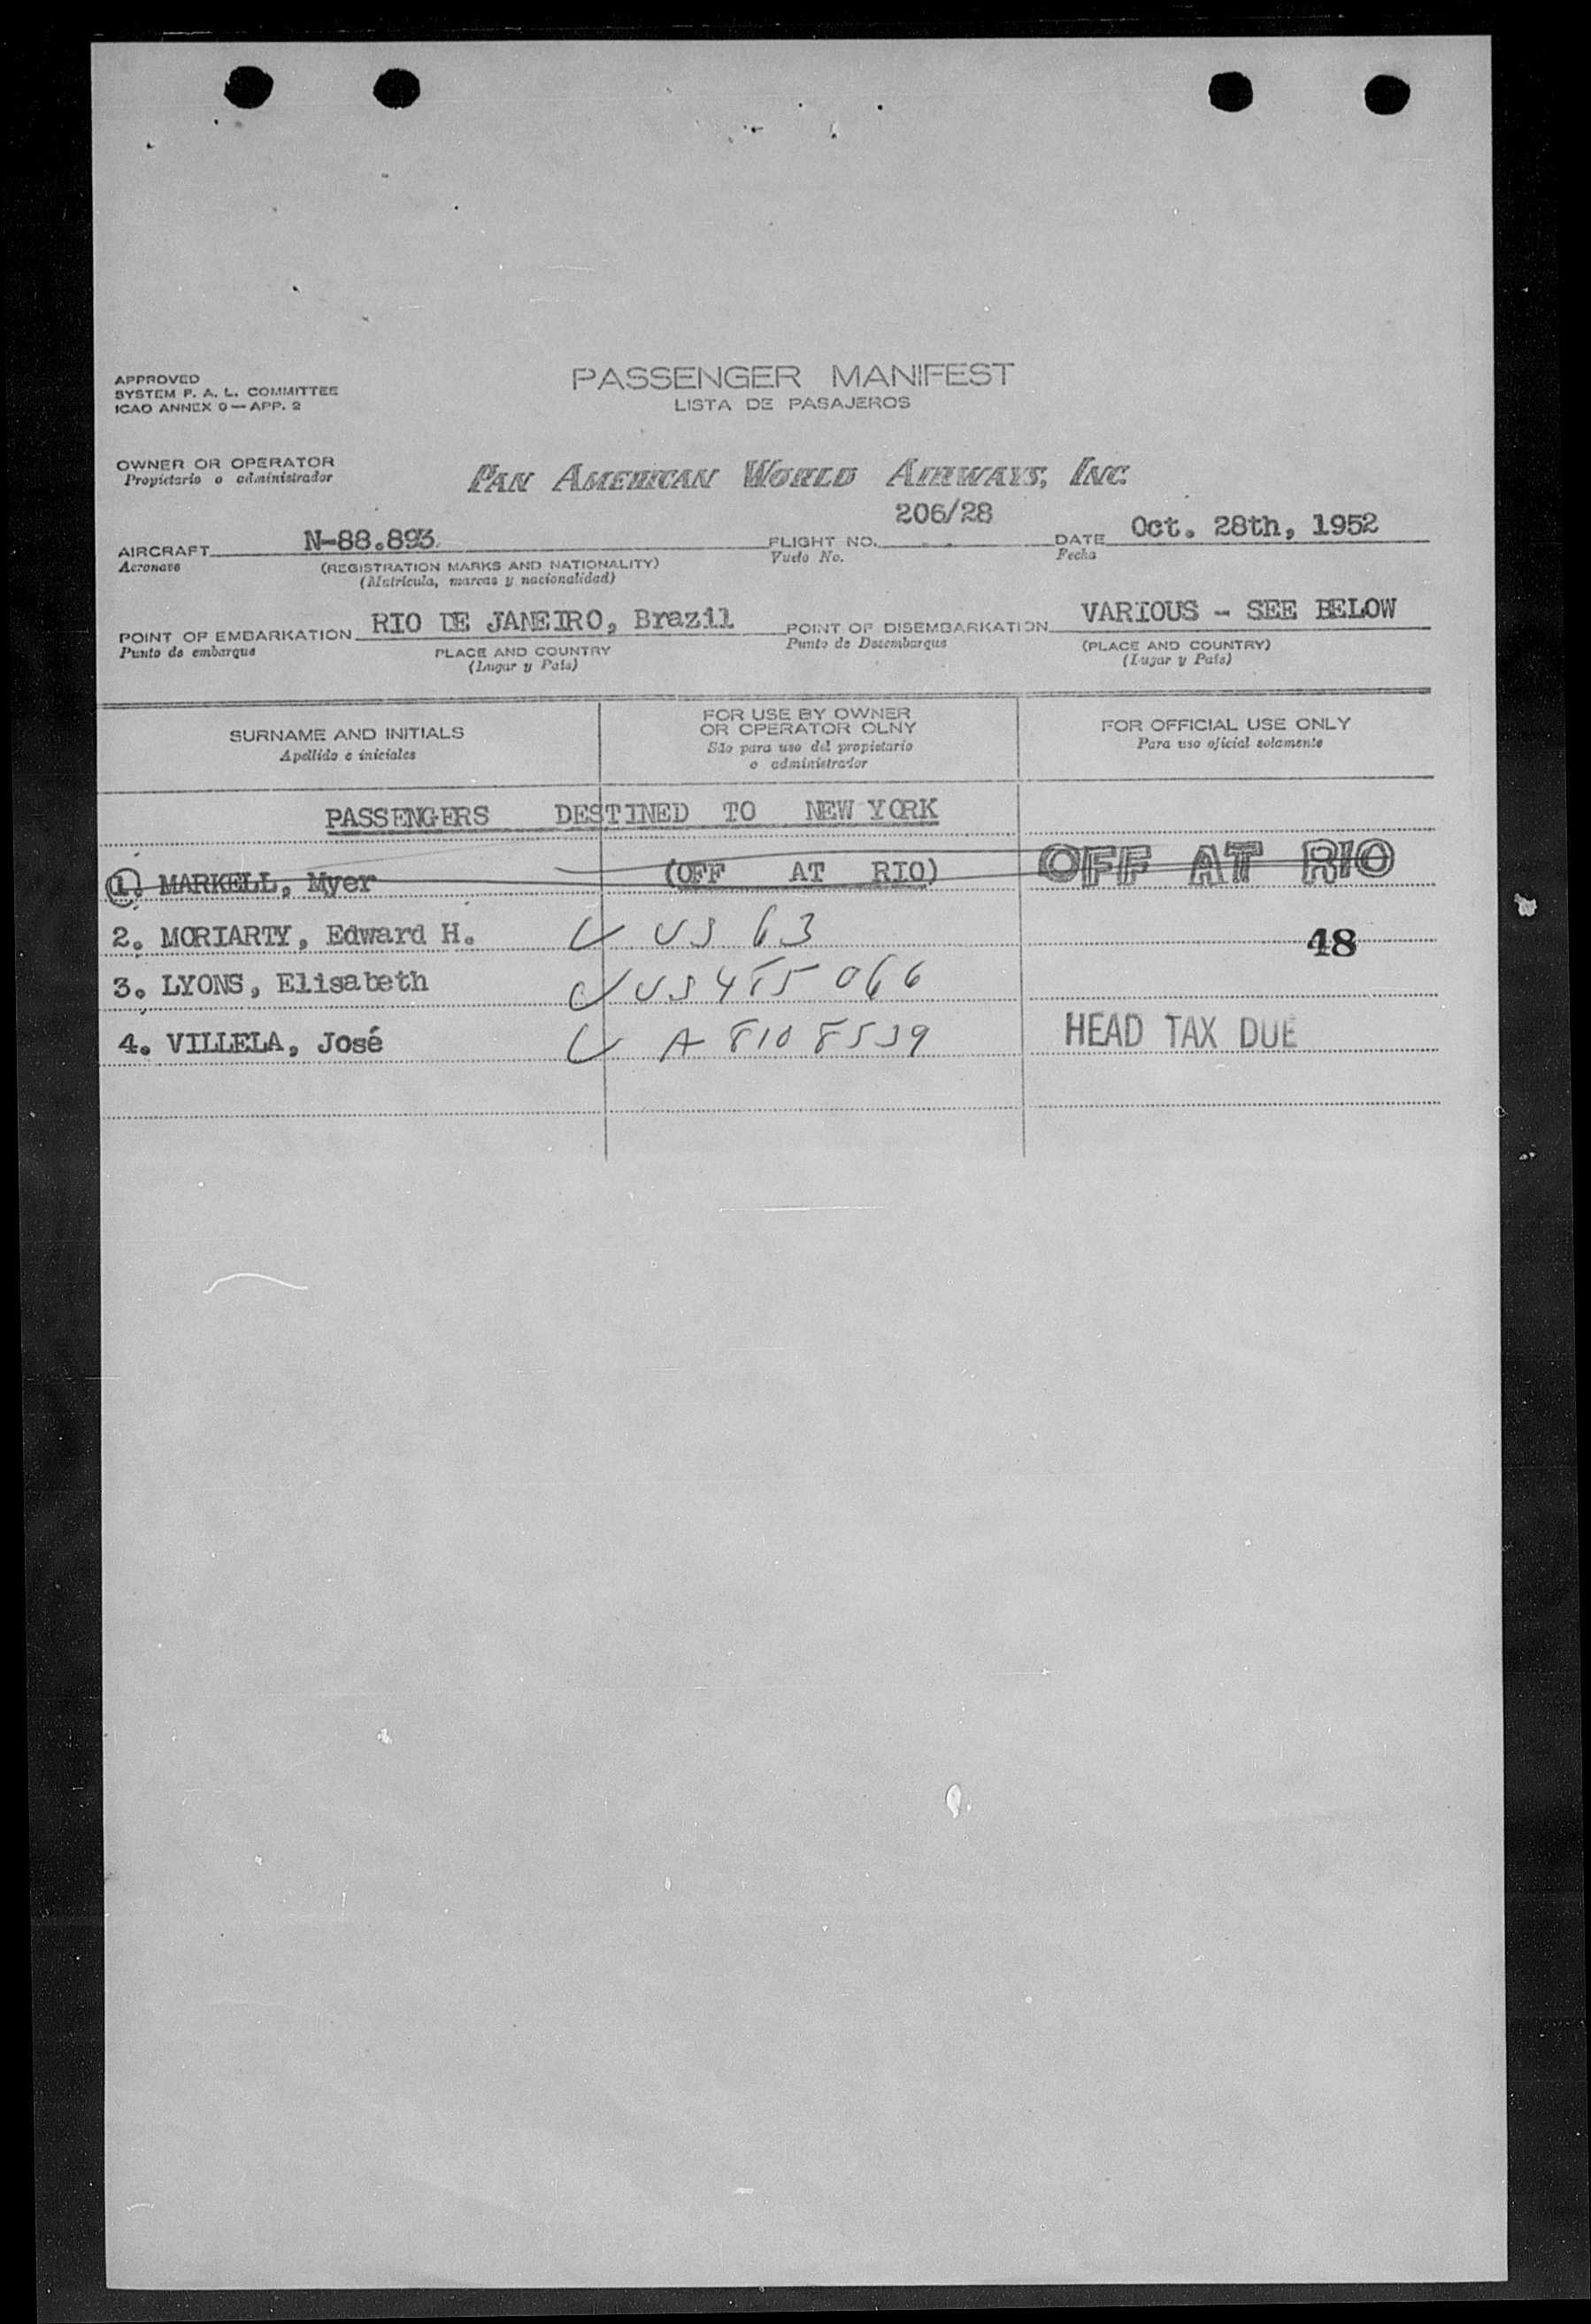 APPROVED
SYSTEM F. A. L. COMMITTEE
ICAO ANNEX 9 — APP. 2
PASSENGER MANIFEST
LISTA DE PASAJEROS
OWNER OR OPERATOR
Propietario o administrador
PAN AMERICAN WORLD AIRWAYS, INC.
AIRCRAFT N-88.893 FLIGHT NO. 206/28 DATE Oct. 28th, 1952
Aeronave Vuelo No. Fecha
(REGISTRATION MARKS AND NATIONALITY)
(Matrícula, marcas y nacionalidad)
POINT OF EMBARKATION RIO DE JANEIRO, Brazil POINT OF DISEMBARKATION VARIOUS - SEE BELOW
Punto de embarque PLACE AND COUNTRY Punto de Desembarque (PLACE AND COUNTRY)
(Lugar y País) (Lugar y País)
SURNAME AND INITIALS
Apellido e iniciales
FOR USE BY OWNER
OR OPERATOR OLNY
São para uso del propietario
o administrador
FOR OFFICIAL USE ONLY
Para uso oficial solamente
PASSENGERS DESTINED TO NEW YORK
1. MARKELL, Myer (OFF AT RIO) OFF AT RIO
2. MORIARTY, Edward H. US 63 48
3. LYONS, Elisabeth US 455 066
4. VILLELA, José A 8108539 HEAD TAX DUE